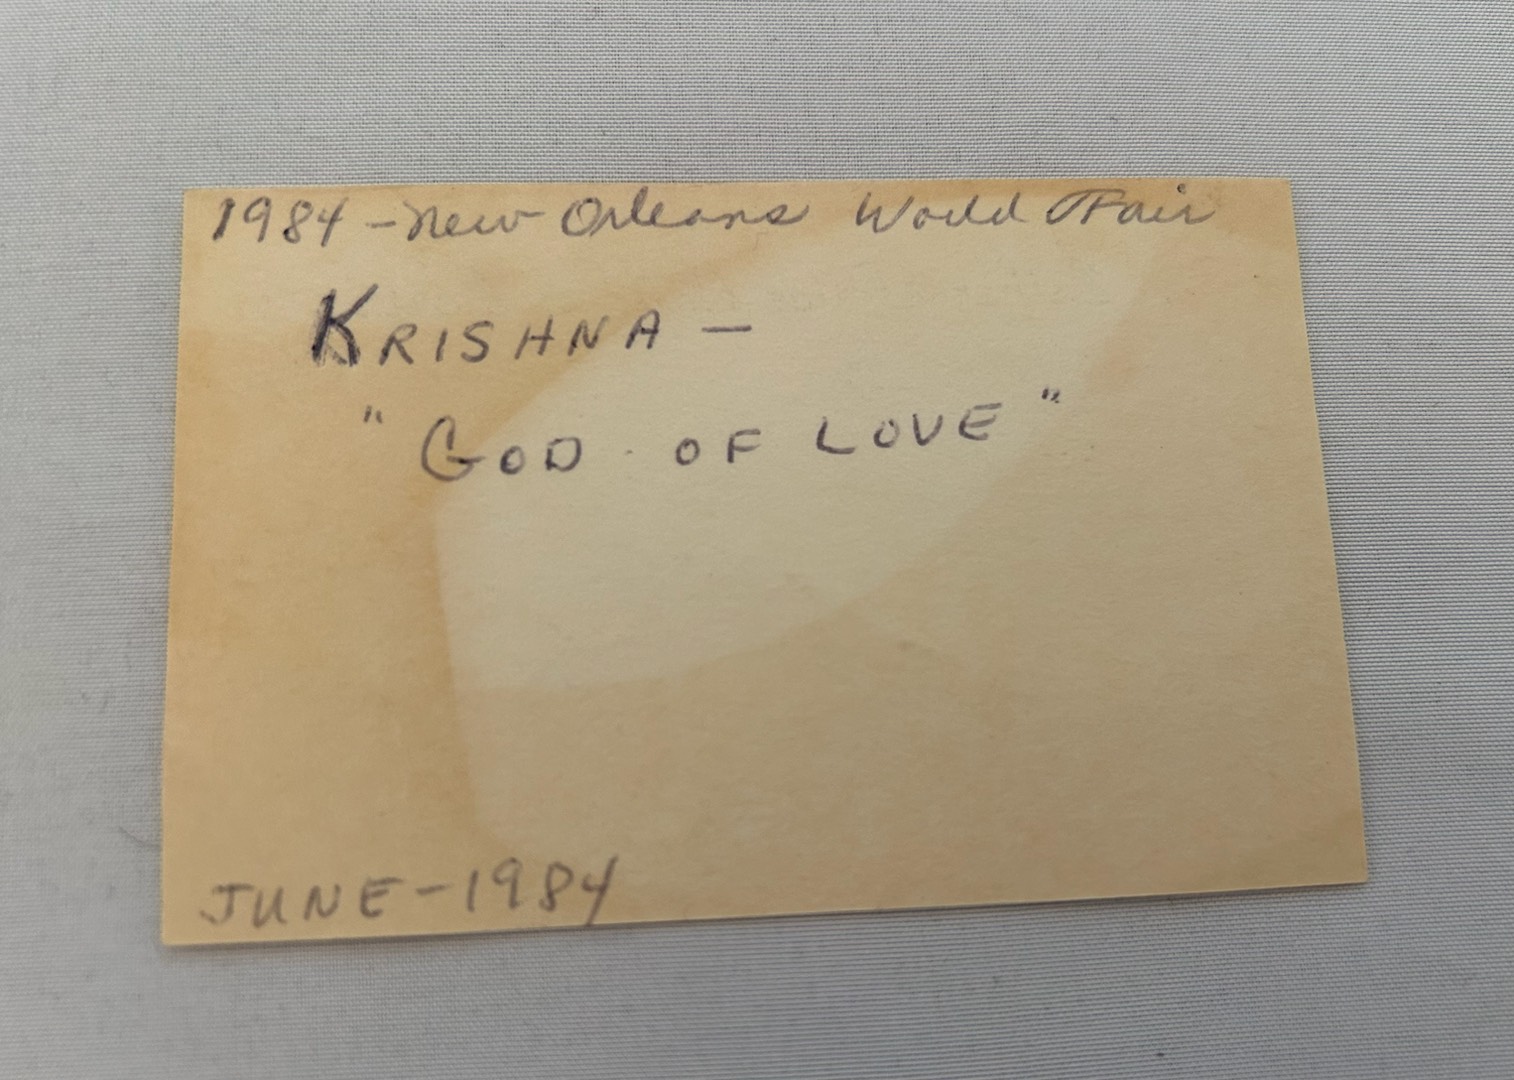 1984 - New Orleans World Fair
KRISHNA -
"GOD OF LOVE"
JUNE - 1984